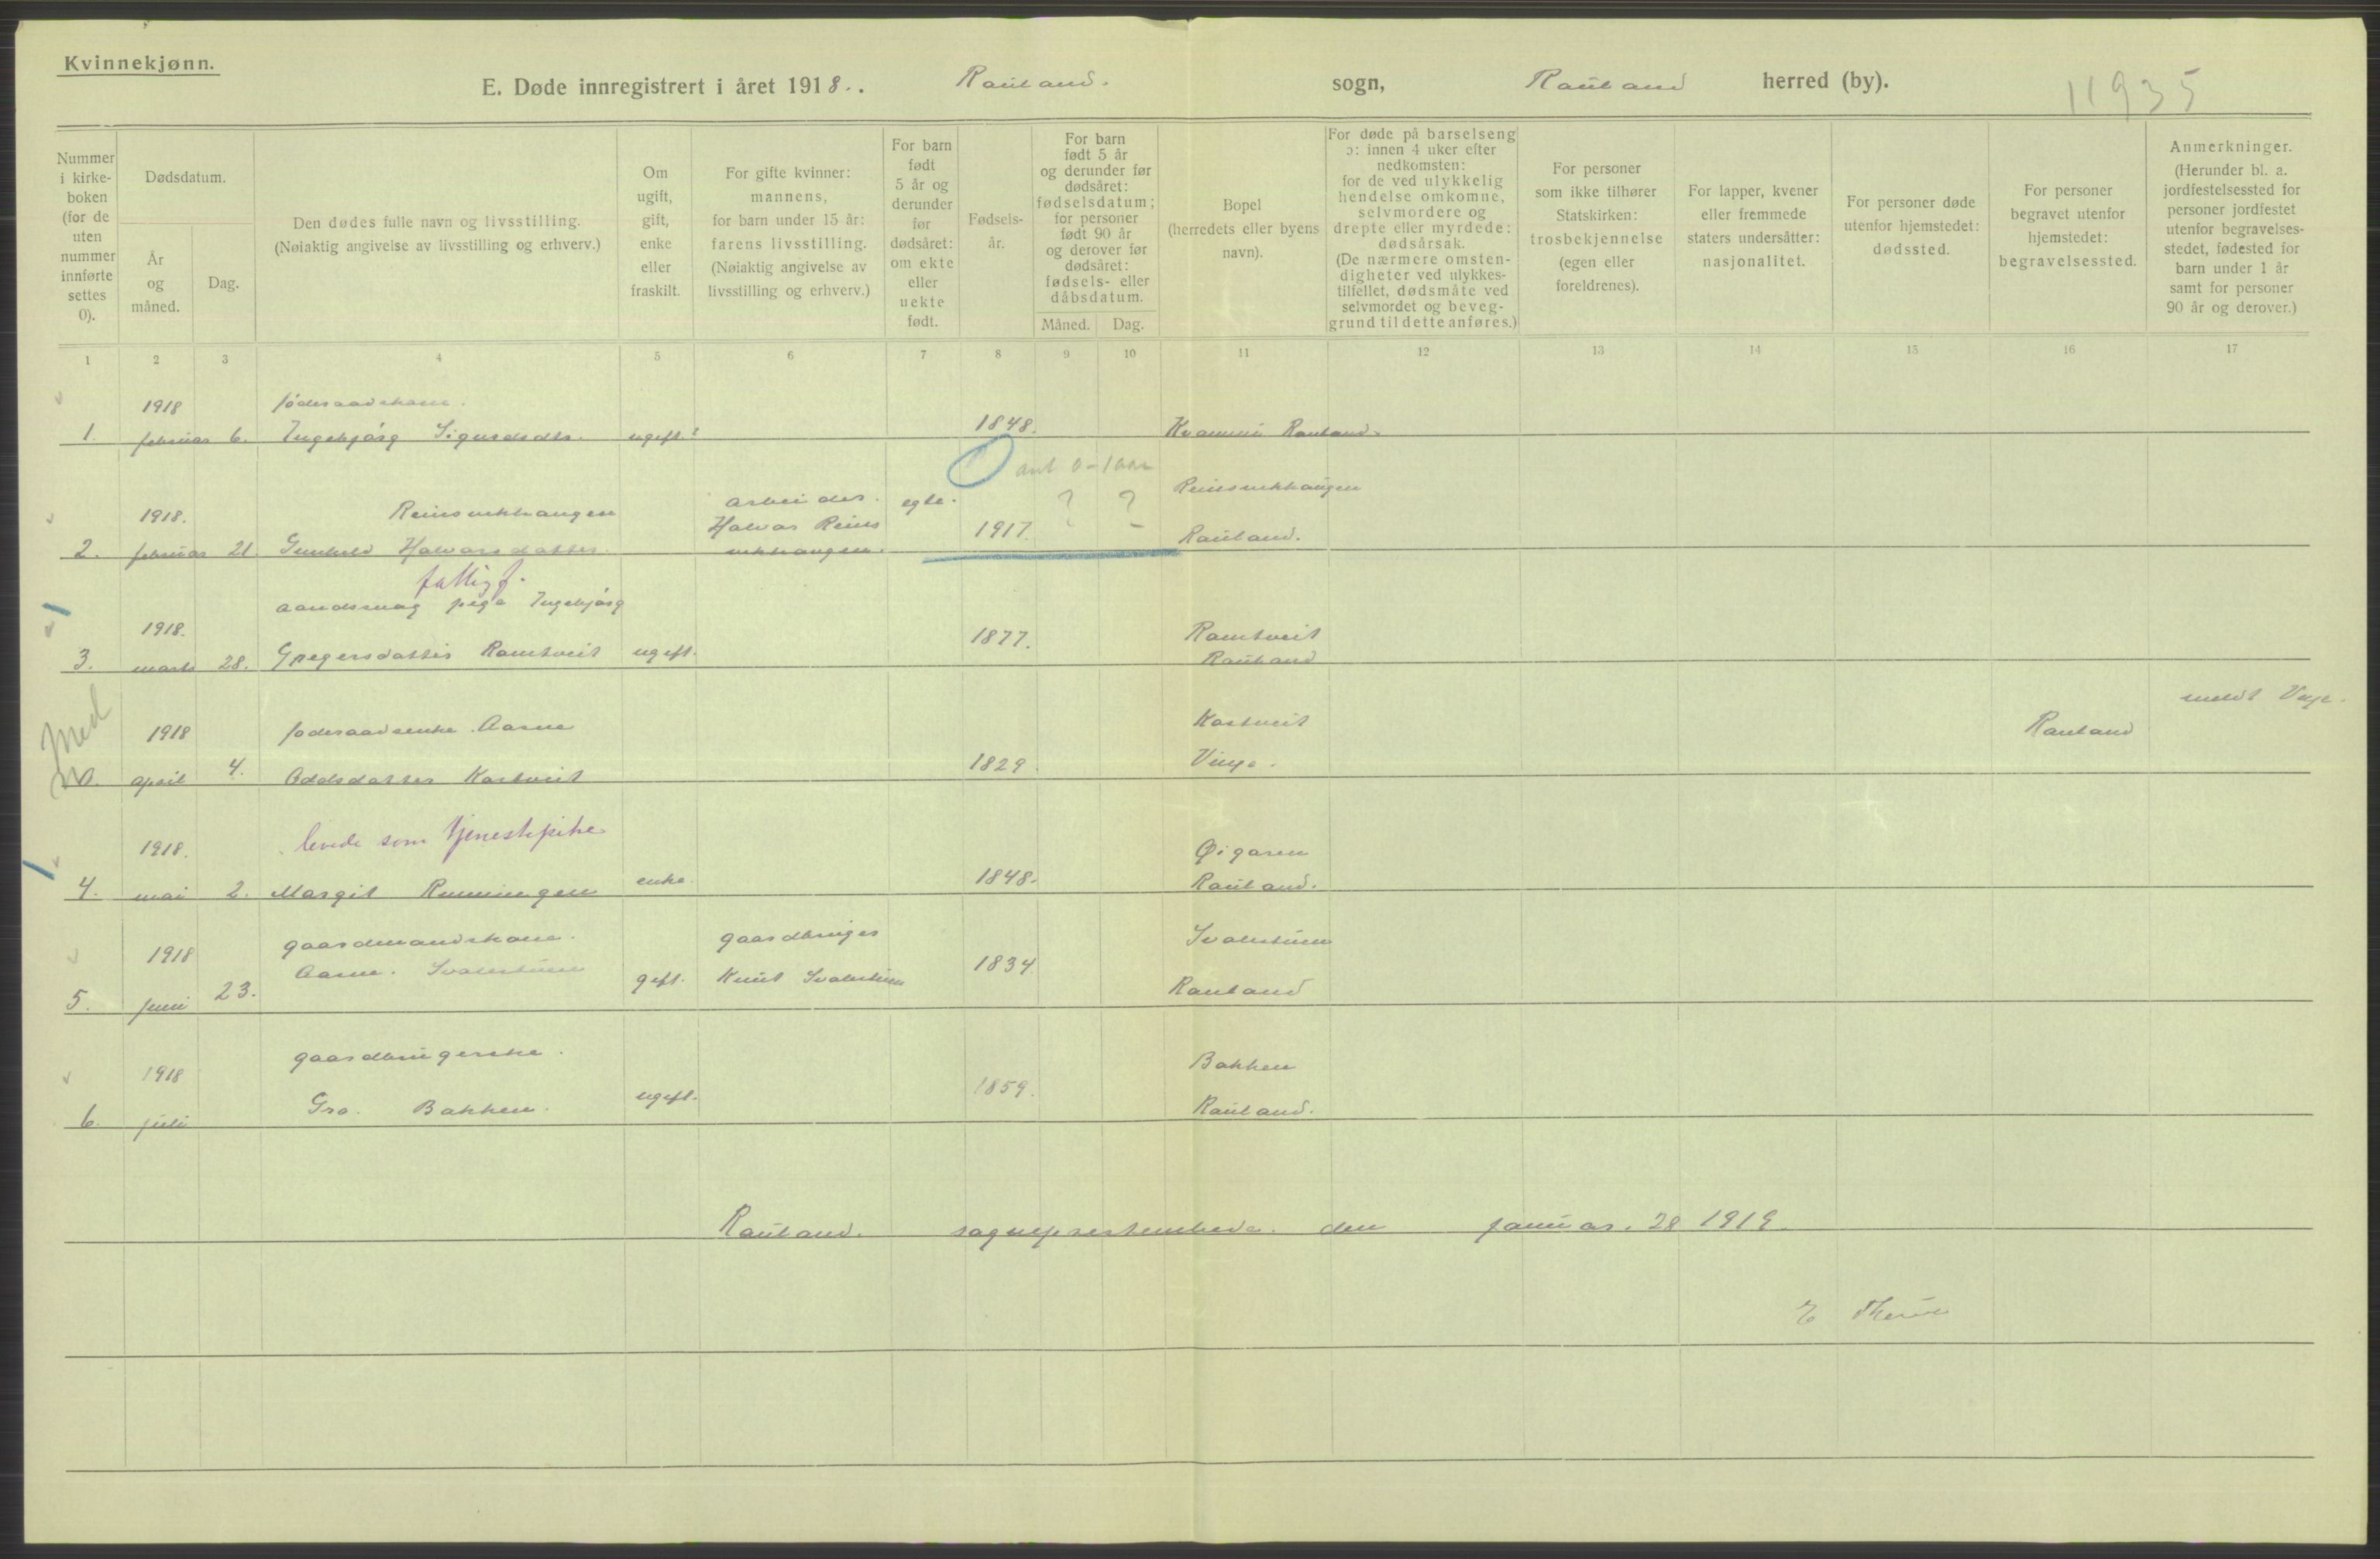 Kvinnekjønn.
E. Døde innregistrert i året 1918. . Rauland. sogn, Rauland herred (by). 11935
Nummer i kirke- boken (for de uten nummer innførte settes 0).
Dødsdatum.
År og måned.
Dag.
Den dødes fulle navn og livsstilling.
(Nøiaktig angivelse av livsstilling og erhverv.)
Om ugift, gift, enke eller fraskilt.
For gifte kvinner: mannens, for barn under 15 år: farens livsstilling. (Nøiaktig angivelse av livsstilling og erhverv.)
For barn født 5 år og derunder før dødsåret: om ekte eller uekte født.
Fødsels- år.
For barn født 5 år og derunder før dødsåret: fødselsdatum; for personer født 90 år og derover før dødsåret: fødsels- eller dåbsdatum.
Måned. Dag.
Bopel (herredets eller byens navn).
For døde på barselseng ɔ: innen 4 uker efter nedkomsten: for de ved ulykkelig hendelse omkomne, selvmordere og drepte eller myrdede: dødsårsak. (De nærmere omsten- digheter ved ulykkes- tilfellet, dødsmåte ved selvmordet og beveg- grund til dette anføres.)
For personer som ikke tilhører Statskirken: trosbekjennelse (egen eller foreldrenes).
For lapper, kvener eller fremmede staters undersåtter: nasjonalitet.
For personer døde utenfor hjemstedet: dødssted.
For personer begravet utenfor hjemstedet: begravelsessted.
Anmerkninger. (Herunder bl. a. jordfestelsessted for personer jordfestet utenfor begravelses- stedet, fødested for barn under 1 år samt for personer 90 år og derover.)
1 2 3 4 5 6 7 8 9 10 11 12 13 14 15 16 17
1918 føderaadskone.
1. februar 6. Ingebjørg Sigurdsdtr. ugift.? 1848. Rauland.
ant 0-1 aar
1918. arbeider. egte. ? ?
2. februar 21. Gunhild Halvorsdatter. Halvor 1917. Rauland.
fattigf.
1918. aandssvag pige Ingebjørg Ramtveit
3. marts 28. Gregersdatter Ramtveit ugift. 1877. Rauland
Med meldt Vinje.
1918 føderaadsenke. Aasne Kostveit Rauland
0. april 4. Oddsdatter Kostveit 1829. Vinje.
1918. levde som tjenestepike Øigaren
4. mai 2. Margit enke. 1848. Rauland.
1918 gaardmandskone. gaardbruger
5. juni 23. Aasne. gift. Knut 1834 Rauland
1918 gaardbrugerske. Bakken
6. juli Gro. Bakken. ugift. 1859. Rauland.
Rauland. sogneprestembede. den januar. 28 1919.
E